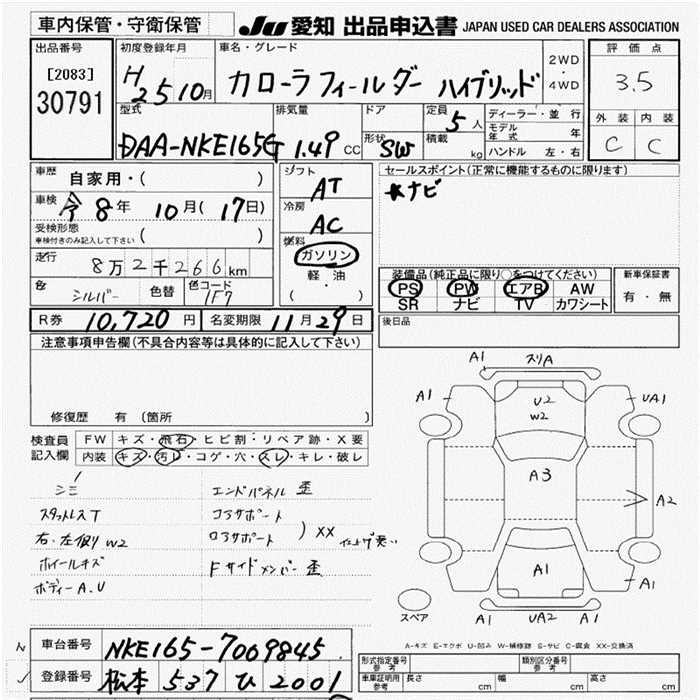 車内保管・守衛保管
JU 愛知 出品申込書 JAPAN USED CAR DEALERS ASSOCIATION
出品番号
[2083]
30791
初度登録年月
H 25 10月
車名・グレード
カローラフィールダー ハイブリッド
2WD
・
4WD
評価点
3.5
外装 内装
C C
型式
DAA-NKE165G
排気量
1.49 CC
ドア
形状 SW
定員 5人
積載 kg
ディーラー・並行
モデル年式 年
ハンドル 左・右
車歴 自家用・( )
車検 令8年 10月(17日)
受検形態
車検付きのみ記入して下さい ( )
走行 8万2千266km
色 シルバー 色替 色コード 1F7
シフト
AT
冷房
AC
燃料
ガソリン
軽・油
( )
セールスポイント(正常に機能するものに限ります)
ナビ
装備品(純正品に限り○をつけてください)
PS PW エアB AW
SR ナビ TV カワシート
新車保証書
有・無
R券 10,720円 名変期限 11月29日
後日品
注意事項申告欄(不具合内容等は具体的に記入して下さい)
修復歴 有 (箇所 )
検査員
記入欄
FW キズ・飛石・ヒビ割・リペア跡・X要
内装 キズ・汚レ・コゲ・穴・スレ・キレ・破レ
シミ
スタットレスT
右、左廻り W2
ホイールキズ
ボディーA.U
エンドパネル 歪
コアサポート
ロアサポート
) XX 仕上げ悪い
Fサイドメンバー 歪
A1 スリA
A1 U2 W2 UA1
A3
A2
A1
A1
A1 UA2 A1
スペア
A-キズ E-エクボ U-凹み W-補修跡 S-サビ C-腐食 XX-交換済
車台番号 NKE165-7009845
登録番号 松本 537 ひ 2001
形式指定番号
参考
類別区分番号
参考
車庫証明用
参考
長さ cm 幅 cm 高さ cm